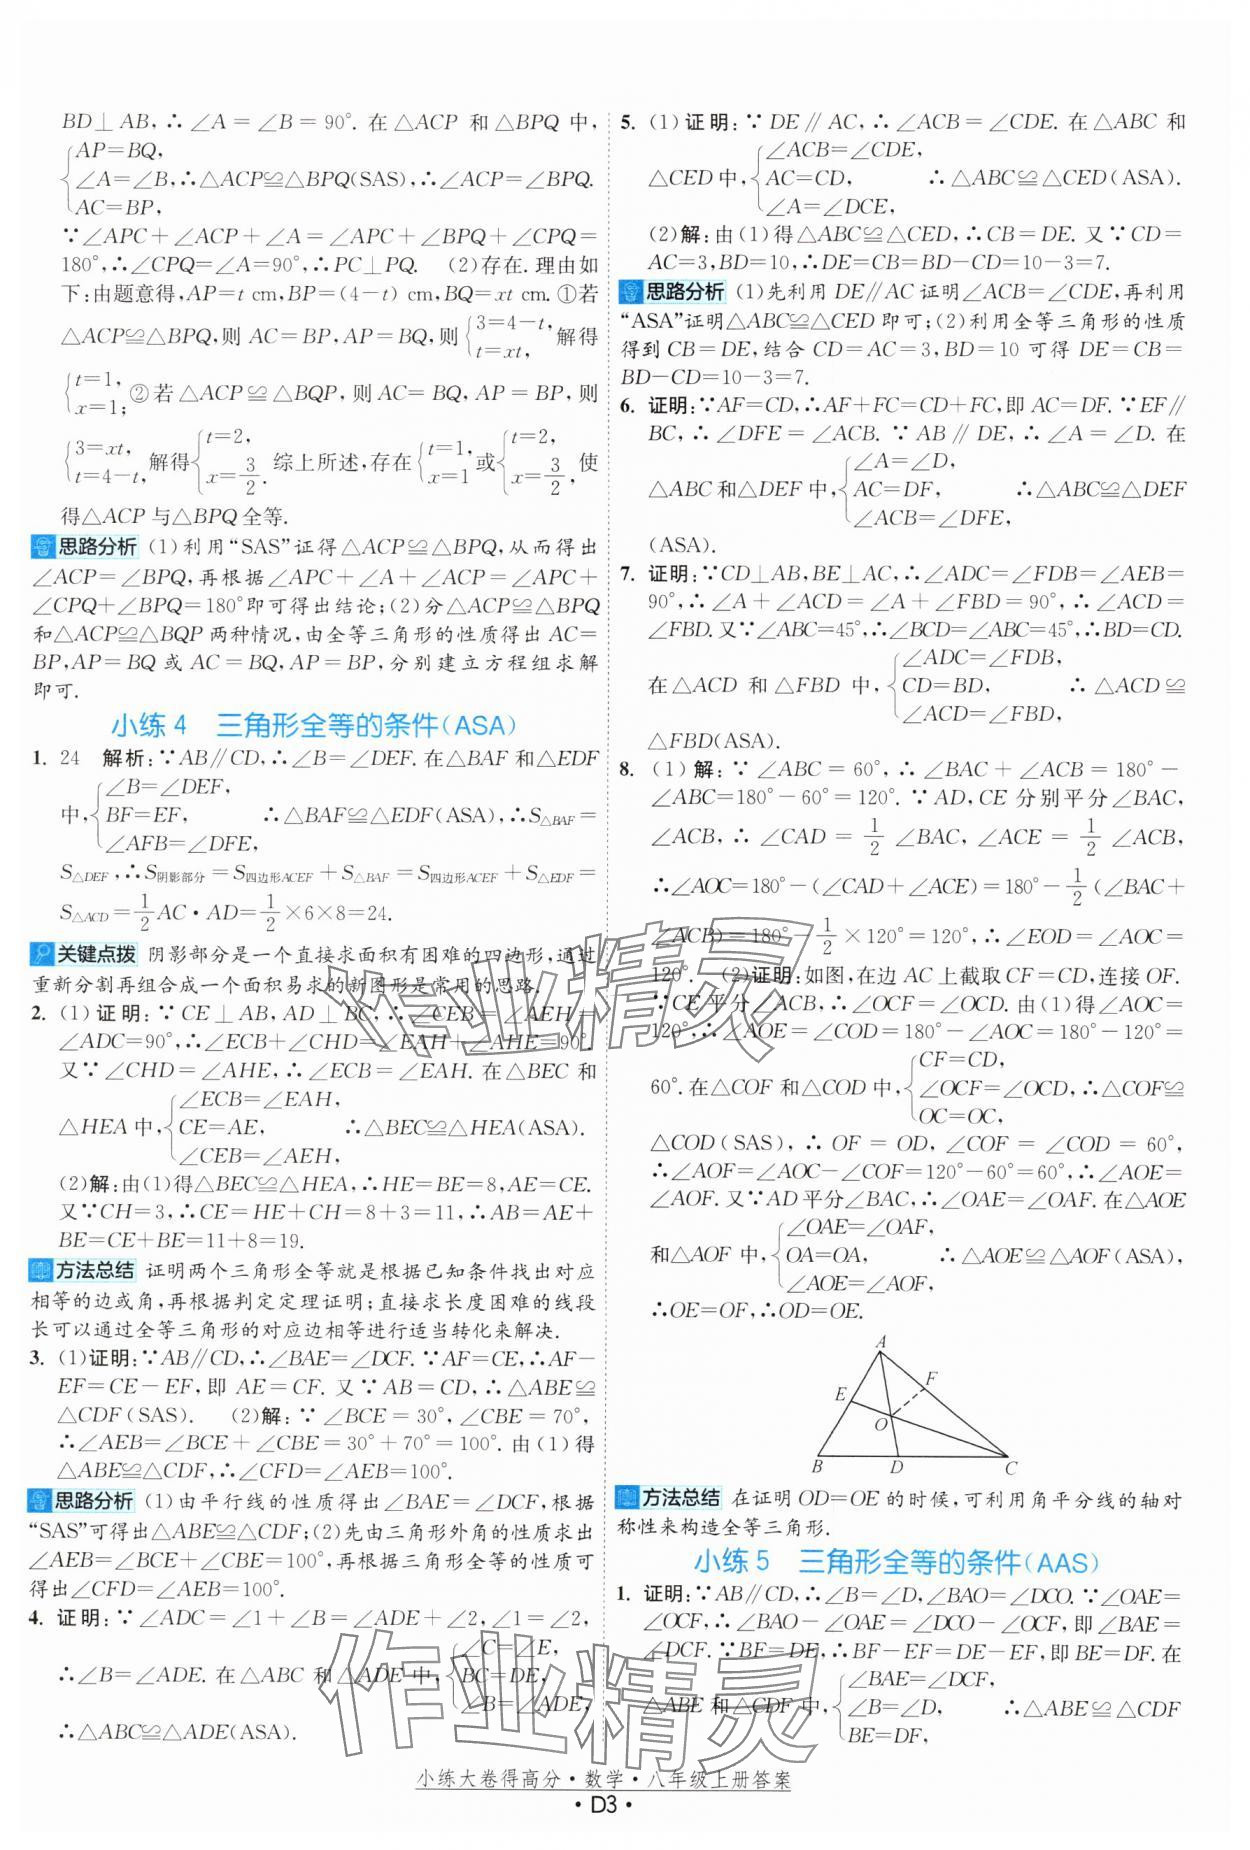 BD⊥AB,∴∠A=∠B=90°.在△ACP 和△BPQ 中,
AP=BQ,
∠A=∠B,∴△ACP≌△BPQ(SAS),∴∠ACP=∠BPQ.
AC=BP,
∵∠APC+∠ACP+∠A=∠APC+∠BPQ+∠CPQ=
180°,∴∠CPQ=∠A=90°,∴PC⊥PQ. (2)存在.理由如
下:由题意得,AP=t cm,BP=(4-t) cm,BQ=xt cm.①若
△ACP≌△BPQ,则 AC=BP,AP=BQ,则{3=4-t, t=xt, 解得
{t=1, x=1; ②若△ACP≌△BQP,则 AC=BQ,AP=BP,则
{3=xt, t=4-t, 解得{t=2, x=3/2. 综上所述,存在{t=1, x=1 或{t=2, x=3/2, 使
得△ACP 与△BPQ 全等.
思路分析 (1)利用“SAS”证得△ACP≌△BPQ,从而得出
∠ACP=∠BPQ,再根据∠APC+∠A+∠ACP=∠APC+
∠CPQ+∠BPQ=180°即可得出结论;(2)分△ACP≌△BPQ
和△ACP≌△BQP 两种情况,由全等三角形的性质得出 AC=
BP,AP=BQ 或 AC=BQ,AP=BP,分别建立方程组求解
即可.
小练 4 三角形全等的条件(ASA)
1. 24 解析:∵AB∥CD,∴∠B=∠DEF.在△BAF 和△EDF
∠B=∠DEF,
中,{BF=EF, ∴△BAF≌△EDF(ASA),∴S△BAF=
∠AFB=∠DFE,
S△DEF,∴S阴影部分=S四边形ACEF+S△BAF=S四边形ACEF+S△EDF=
S△ACD=1/2AC·AD=1/2×6×8=24.
关键点拨 阴影部分是一个直接求面积有困难的四边形,通过
重新分割再组合成一个面积易求的新图形是常用的思路.
2. (1)证明:∵CE⊥AB,AD⊥BC,∴∠CEB=∠AEH=
∠ADC=90°,∴∠ECB+∠CHD=∠EAH+∠AHE=90°.
又∵∠CHD=∠AHE,∴∠ECB=∠EAH.在△BEC 和
∠ECB=∠EAH,
△HEA 中,{CE=AE, ∴△BEC≌△HEA(ASA).
∠CEB=∠AEH,
(2)解:由(1)得△BEC≌△HEA,∴HE=BE=8,AE=CE.
又∵CH=3,∴CE=HE+CH=8+3=11,∴AB=AE+
BE=CE+BE=11+8=19.
方法总结 证明两个三角形全等就是根据已知条件找出对应
相等的边或角,再根据判定定理证明;直接求长度困难的线段
长可以通过全等三角形的对应边相等进行适当转化来解决.
3. (1)证明:∵AB∥CD,∴∠BAE=∠DCF.∵AF=CE,∴AF-
EF=CE-EF,即 AE=CF.又∵AB=CD,∴△ABE≌
△CDF(SAS). (2)解:∵∠BCE=30°,∠CBE=70°,
∴∠AEB=∠BCE+∠CBE=30°+70°=100°.由(1)得
△ABE≌△CDF,∴∠CFD=∠AEB=100°.
思路分析 (1)由平行线的性质得出∠BAE=∠DCF,根据
“SAS”可得出△ABE≌△CDF;(2)先由三角形外角的性质求出
∠AEB=∠BCE+∠CBE=100°,再根据三角形全等的性质可
得出∠CFD=∠AEB=100°.
4. 证明:∵∠ADC=∠1+∠B=∠ADE+∠2,∠1=∠2,
∠C=∠E,
∴∠B=∠ADE.在△ABC 和△ADE 中,{BC=DE,
∠B=∠ADE,
∴△ABC≌△ADE(ASA).
5. (1)证明:∵DE∥AC,∴∠ACB=∠CDE.在△ABC 和
∠ACB=∠CDE,
△CED中,{AC=CD, ∴△ABC≌△CED(ASA).
∠A=∠DCE,
(2)解:由(1)得△ABC≌△CED,∴CB=DE.又∵CD=
AC=3,BD=10,∴DE=CB=BD-CD=10-3=7.
思路分析 (1)先利用 DE∥AC 证明∠ACB=∠CDE,再利用
“ASA”证明△ABC≌△CED 即可;(2)利用全等三角形的性质
得到 CB=DE,结合 CD=AC=3,BD=10 可得 DE=CB=
BD-CD=10-3=7.
6. 证明:∵AF=CD,∴AF+FC=CD+FC,即 AC=DF.∵EF∥
BC,∴∠DFE=∠ACB.∵AB∥DE,∴∠A=∠D.在
∠A=∠D,
△ABC 和△DEF 中,{AC=DF, ∴△ABC≌△DEF
∠ACB=∠DFE,
(ASA).
7. 证明:∵CD⊥AB,BE⊥AC,∴∠ADC=∠FDB=∠AEB=
90°,∴∠A+∠ACD=∠A+∠FBD=90°,∴∠ACD=
∠FBD.又∵∠ABC=45°,∴∠BCD=∠ABC=45°,∴BD=CD.
∠ADC=∠FDB,
在△ACD 和△FBD 中,{CD=BD, ∴△ACD≌
∠ACD=∠FBD,
△FBD(ASA).
8. (1)解:∵∠ABC=60°,∴∠BAC+∠ACB=180°-
∠ABC=180°-60°=120°.∵AD,CE 分别平分∠BAC,
∠ACB,∴∠CAD=1/2∠BAC,∠ACE=1/2∠ACB,
∴∠AOC=180°-(∠CAD+∠ACE)=180°-1/2(∠BAC+
∠ACB)=180°-1/2×120°=120°,∴∠EOD=∠AOC=
120°. (2)证明:如图,在边 AC 上截取 CF=CD,连接 OF.
∵CE 平分∠ACB,∴∠OCF=∠OCD.由(1)得∠AOC=
120°,∴∠AOE=∠COD=180°-∠AOC=180°-120°=
CF=CD,
60°.在△COF 和△COD 中,{∠OCF=∠OCD,∴△COF≌
OC=OC,
△COD(SAS),∴OF=OD,∠COF=∠COD=60°,
∴∠AOF=∠AOC-∠COF=120°-60°=60°,∴∠AOE=
∠AOF.又∵AD 平分∠BAC,∴∠OAE=∠OAF.在△AOE
∠OAE=∠OAF,
和△AOF 中,{OA=OA, ∴△AOE≌△AOF(ASA),
∠AOE=∠AOF,
∴OE=OF,∴OD=OE.
A
F
E
O
B D C
方法总结 在证明 OD=OE 的时候,可利用角平分线的轴对
称性来构造全等三角形.
小练 5 三角形全等的条件(AAS)
1. 证明:∵AB∥CD,∴∠B=∠D,∠BAO=∠DCO.∵∠OAE=
∠OCF,∴∠BAO-∠OAE=∠DCO-∠OCF,即∠BAE=
∠DCF.∵BF=DE,∴BF-EF=DE-EF,即 BE=DF.在
∠BAE=∠DCF,
△ABE 和△CDF 中,{∠B=∠D, ∴△ABE≌△CDF
BE=DF,
作业精灵
作业精灵
小练大卷得高分·数学·八年级上册答案
·D3·